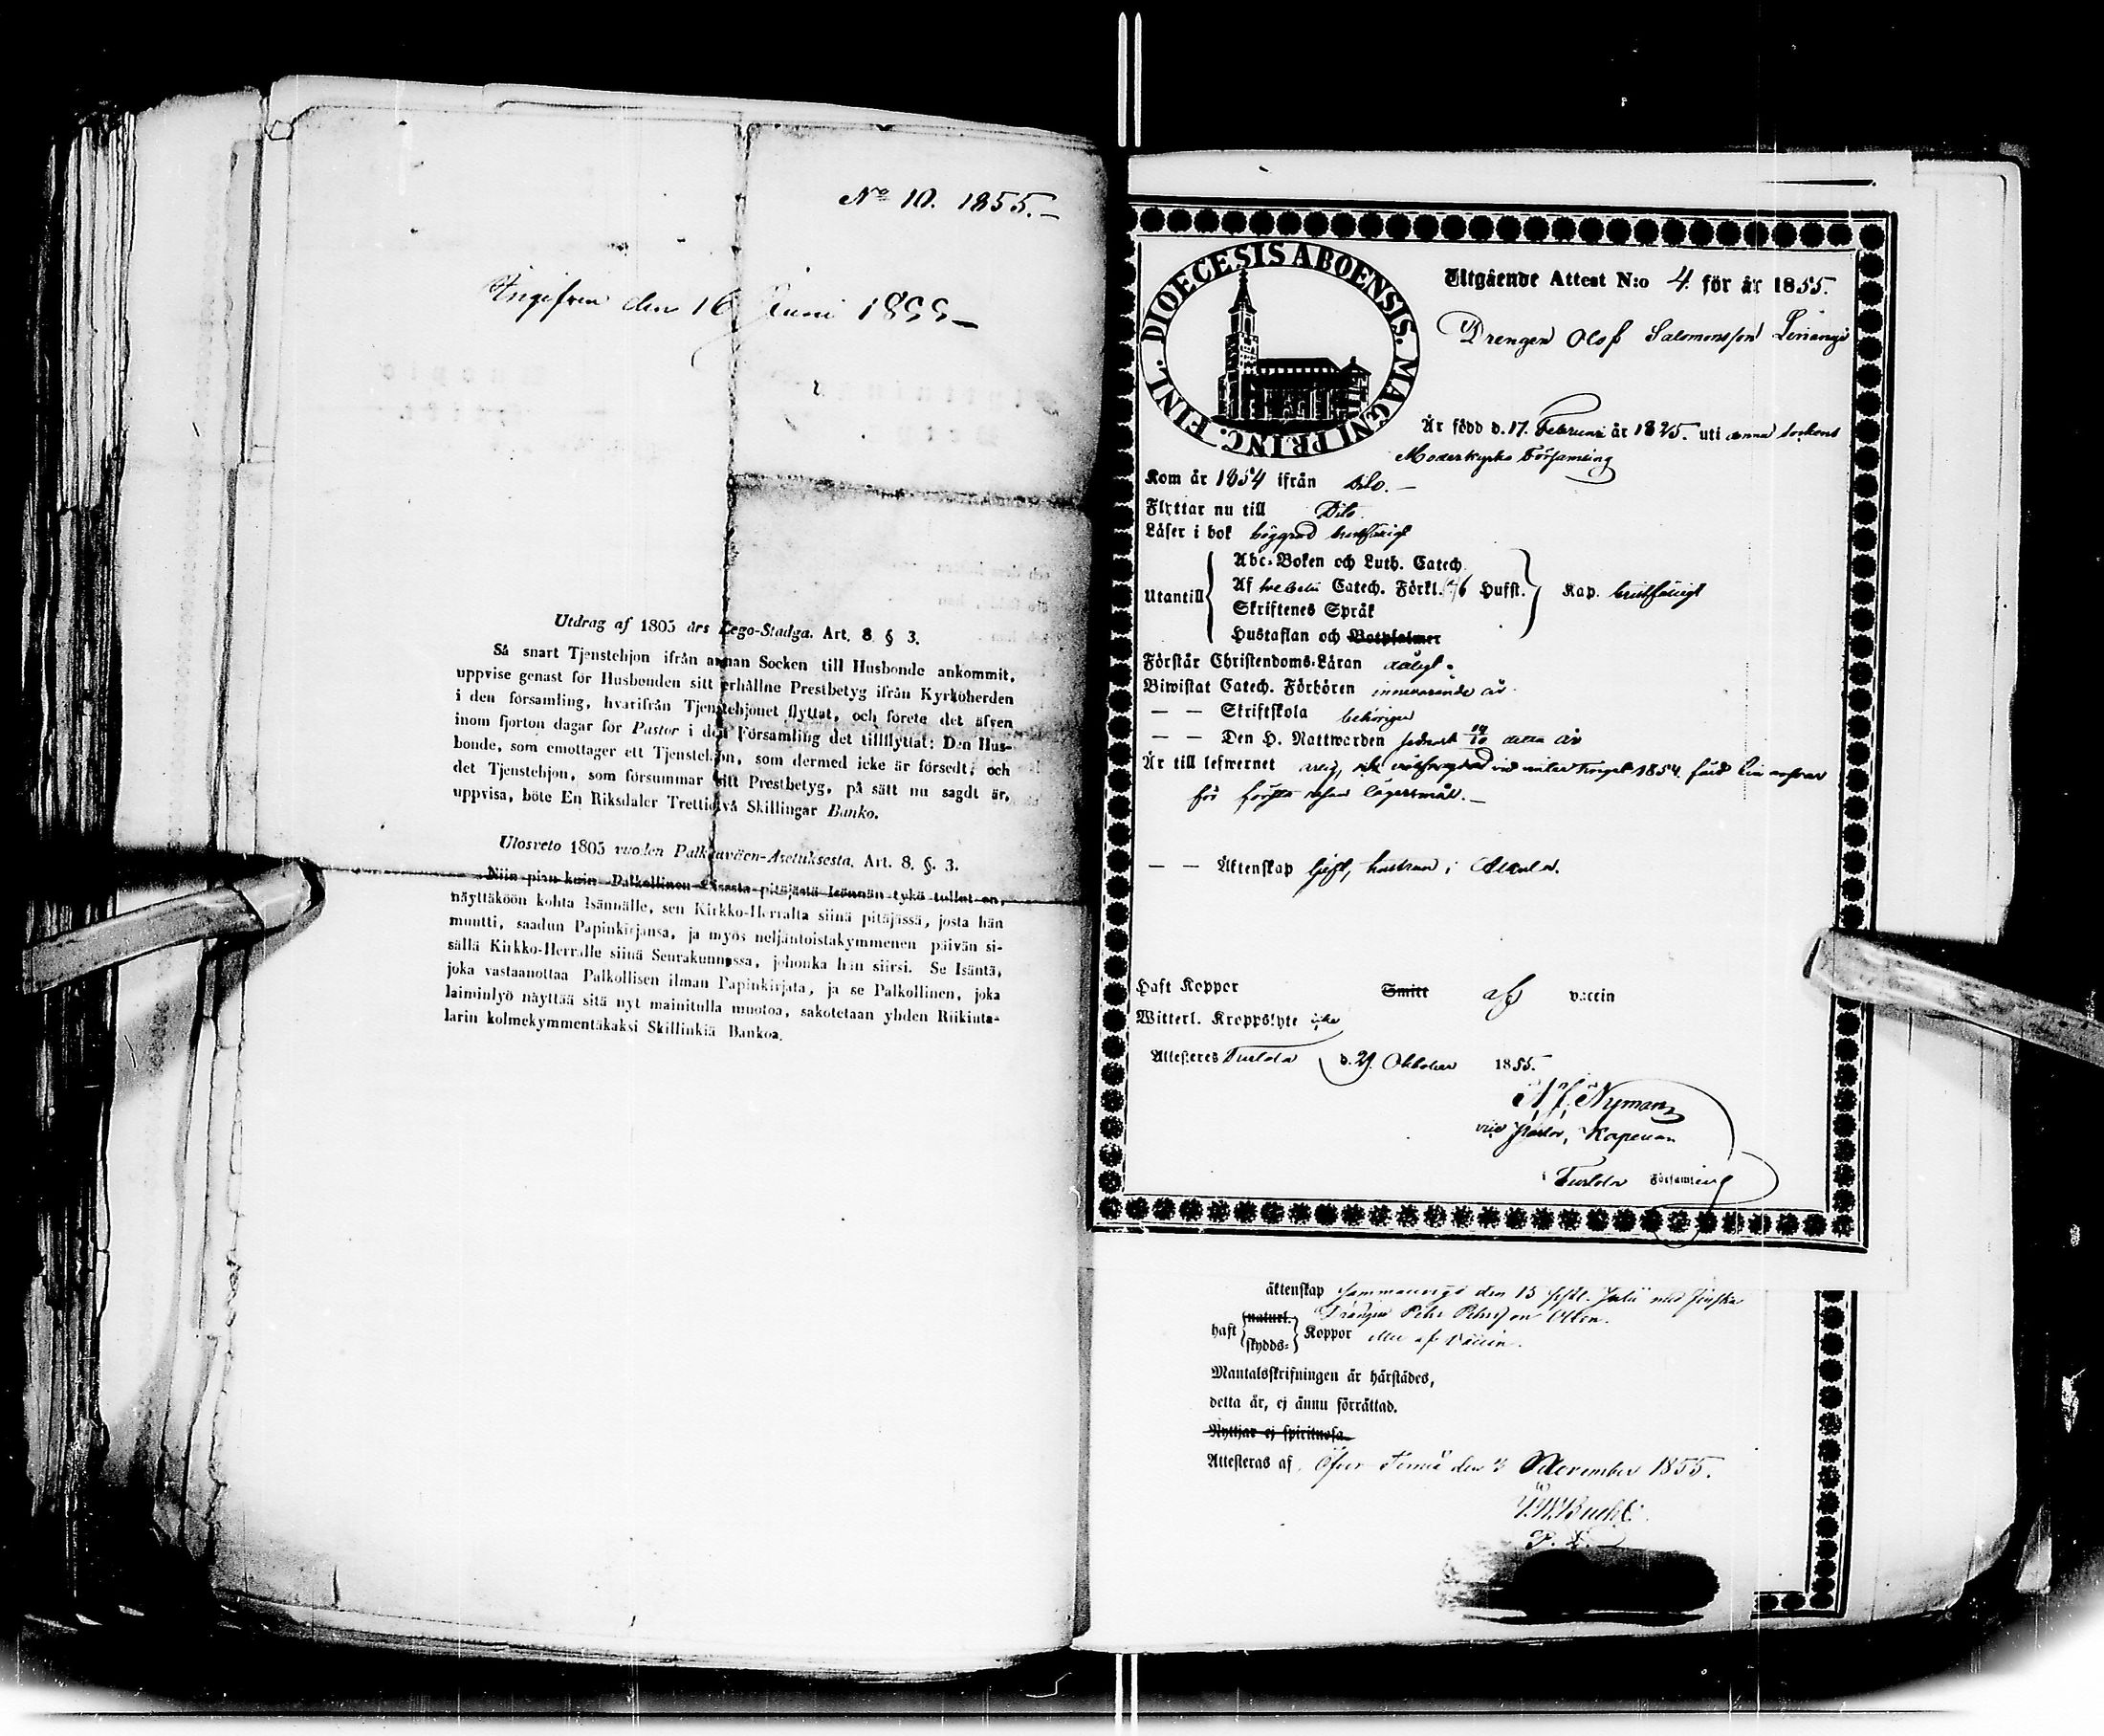 No 10. 1855.–
Ingifven den 16 Juni 1855–
Utdrag af 1805 års Lego-Stadga. Art. 8 § 3.
Så snart Tjenstehjon ifrån annan Socken till Husbonde ankommit,
uppvise genast för Husbonden sitt erhållne Prestbetyg ifrån Kyrkoherden
i den församling, hvarifrån Tjenstehjonet flyttat, och förete det äfven
inom fjorton dagar for Pastor i den Församling det tillflyttat: Den Hus-
bonde, som emottager ett Tjenstehjon, som dermed icke är försedt; och
det Tjenstehjon, som försummar sitt Prestbetyg, på sätt nu sagdt är,
uppvisa, böte En Riksdaler Trettiotvå Skillingar Banko.
Ulosveto 1805 vuoden Palkkaväen-Asetuksesta. Art. 8. §. 3.
Niin pian kuin Palkollinen pitäjästä Isännän tykö tullut on,
näyttäköön kohta Isännälle, sen Kirkko-Herralta siinä pitäjässä, josta hän
muutti, saadun Papinkirjansa, ja myös neljäntoistakymmenen päivän si-
sällä Kirkko-Herralle siinä Seurakunnassa, johonka hän siirsi. Se Isäntä,
joka vastaanottaa Palkollisen ilman Papinkirjata, ja se Palkollinen, joka
laiminlyö näyttää sitä nyt mainitulla muotoa, sakotetaan yhden Riikinta-
larin kolmekymmentäkaksi Skillinkiä Bankoa.
DIOECESIS ABOENSIS. MAGNI PRINC. FINL.
Utgående Attest N:o 4. för år 1855.
Drengen Olof Salomonsson
Är född d. 17. Februari år 1825. uti denna sockens
Moderkyrko Församling
Kom år 1854 ifrån
Flyttar nu till Dito.
Läser i bok
Abc-Boken och Luth. Catech.
Utantill Af Catech. Förkl. 6 Hufst. Kap.
Skriftenes Språk
Hustaflan och Botpsalmer
Förstår Christendoms-Läran
Biwistat Catech. Förhören innevarande år
— — Skriftskola behörigen
— — Den H. Nattwarden sednast detta år
Är till lefwernet vid vinter Tinget 1854
för första resan lägersmål.–
— — Äktenskap Gift, hustrun i
Haft Koppor Smitt af vaccin
Witterl. Kroppslyte icke
Attesteres d. 29. Oktober 1855.
Nyman
vice Pastor, Kapellan
i Församling
äktenskap den 15 Julii med
Drängen Pehr Pehrsson
haft naturl. skydds- Koppor eller af Vaccin.
Mantalsskrifningen är härstädes,
detta år, ej ännu förrättad.
Nyttjar ej spirituosa.
Attesteras af den November 1855.